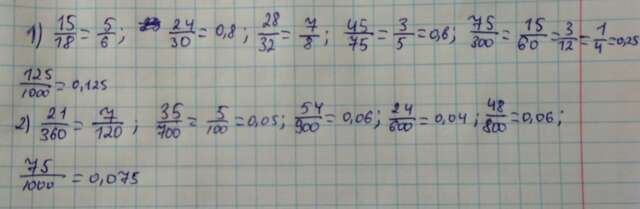 1) 15/18 = 5/6; 24/30 = 0,8; 28/32 = 7/8; 45/75 = 3/5 = 0,6; 75/300 = 15/60 = 3/12 = 1/4 = 0,25
125/1000 = 0,125
2) 21/360 = 7/120; 35/700 = 5/100 = 0,05; 54/900 = 0,06; 24/600 = 0,04; 48/800 = 0,06;
75/1000 = 0,075